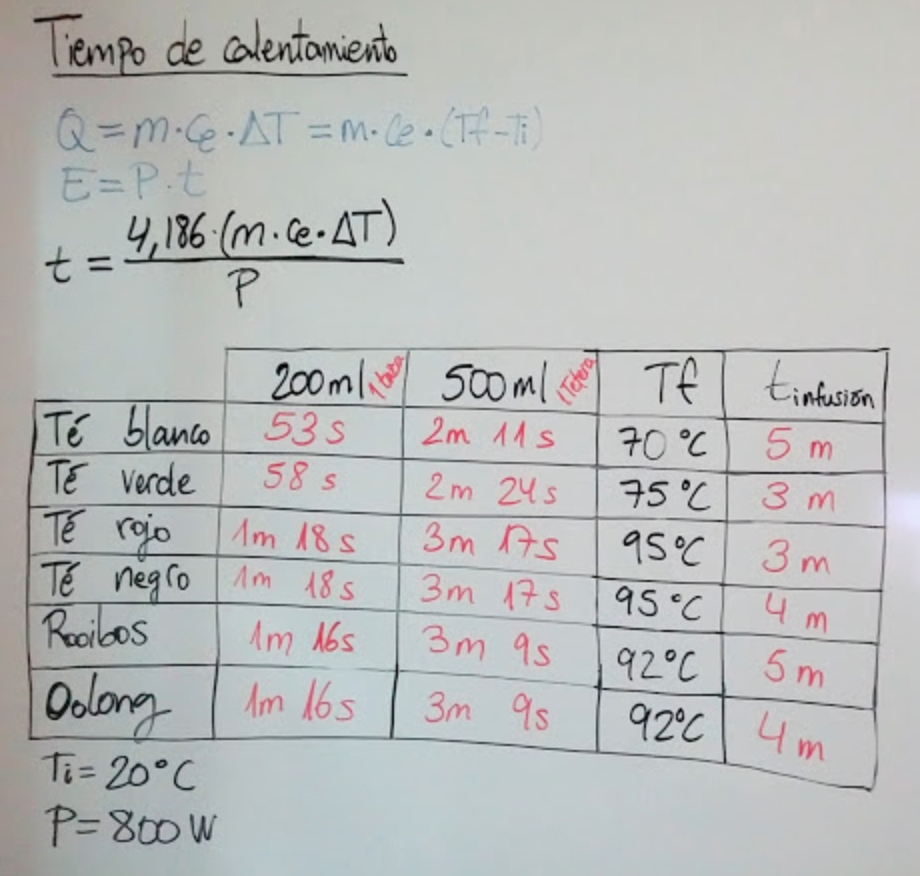 Tiempo de calentamiento
Q = m·Ce·ΔT = m·Ce·(Tf-Ti)
E = P·t
t = 4,186·(m·Ce·ΔT) / P
200ml 1 taza 500ml 1 Tetera Tf t infusión
Té blanco 53 s 2m 11 s 70 °C 5 m
Té verde 58 s 2m 24s 75°C 3 m
Té rojo 1m 18s 3m 17s 95°C 3 m
Té negro 1m 18s 3m 17s 95°C 4 m
Rooibos 1m 16s 3m 9s 92°C 5 m
Oolong 1m 16s 3m 9s 92°C 4 m
Ti = 20°C
P = 800 W